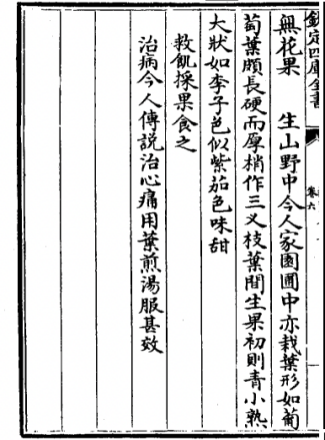 欽定四庫全書
卷六
無花果　生山野中今人家園圃中亦栽葉形如葡
萄葉頗長硬而厚梢作三叉枝葉間生果初則青小熟
大狀如李子色似紫茄色味甜
救飢採果食之
治病今人傳說治心痛用葉煎湯服甚效